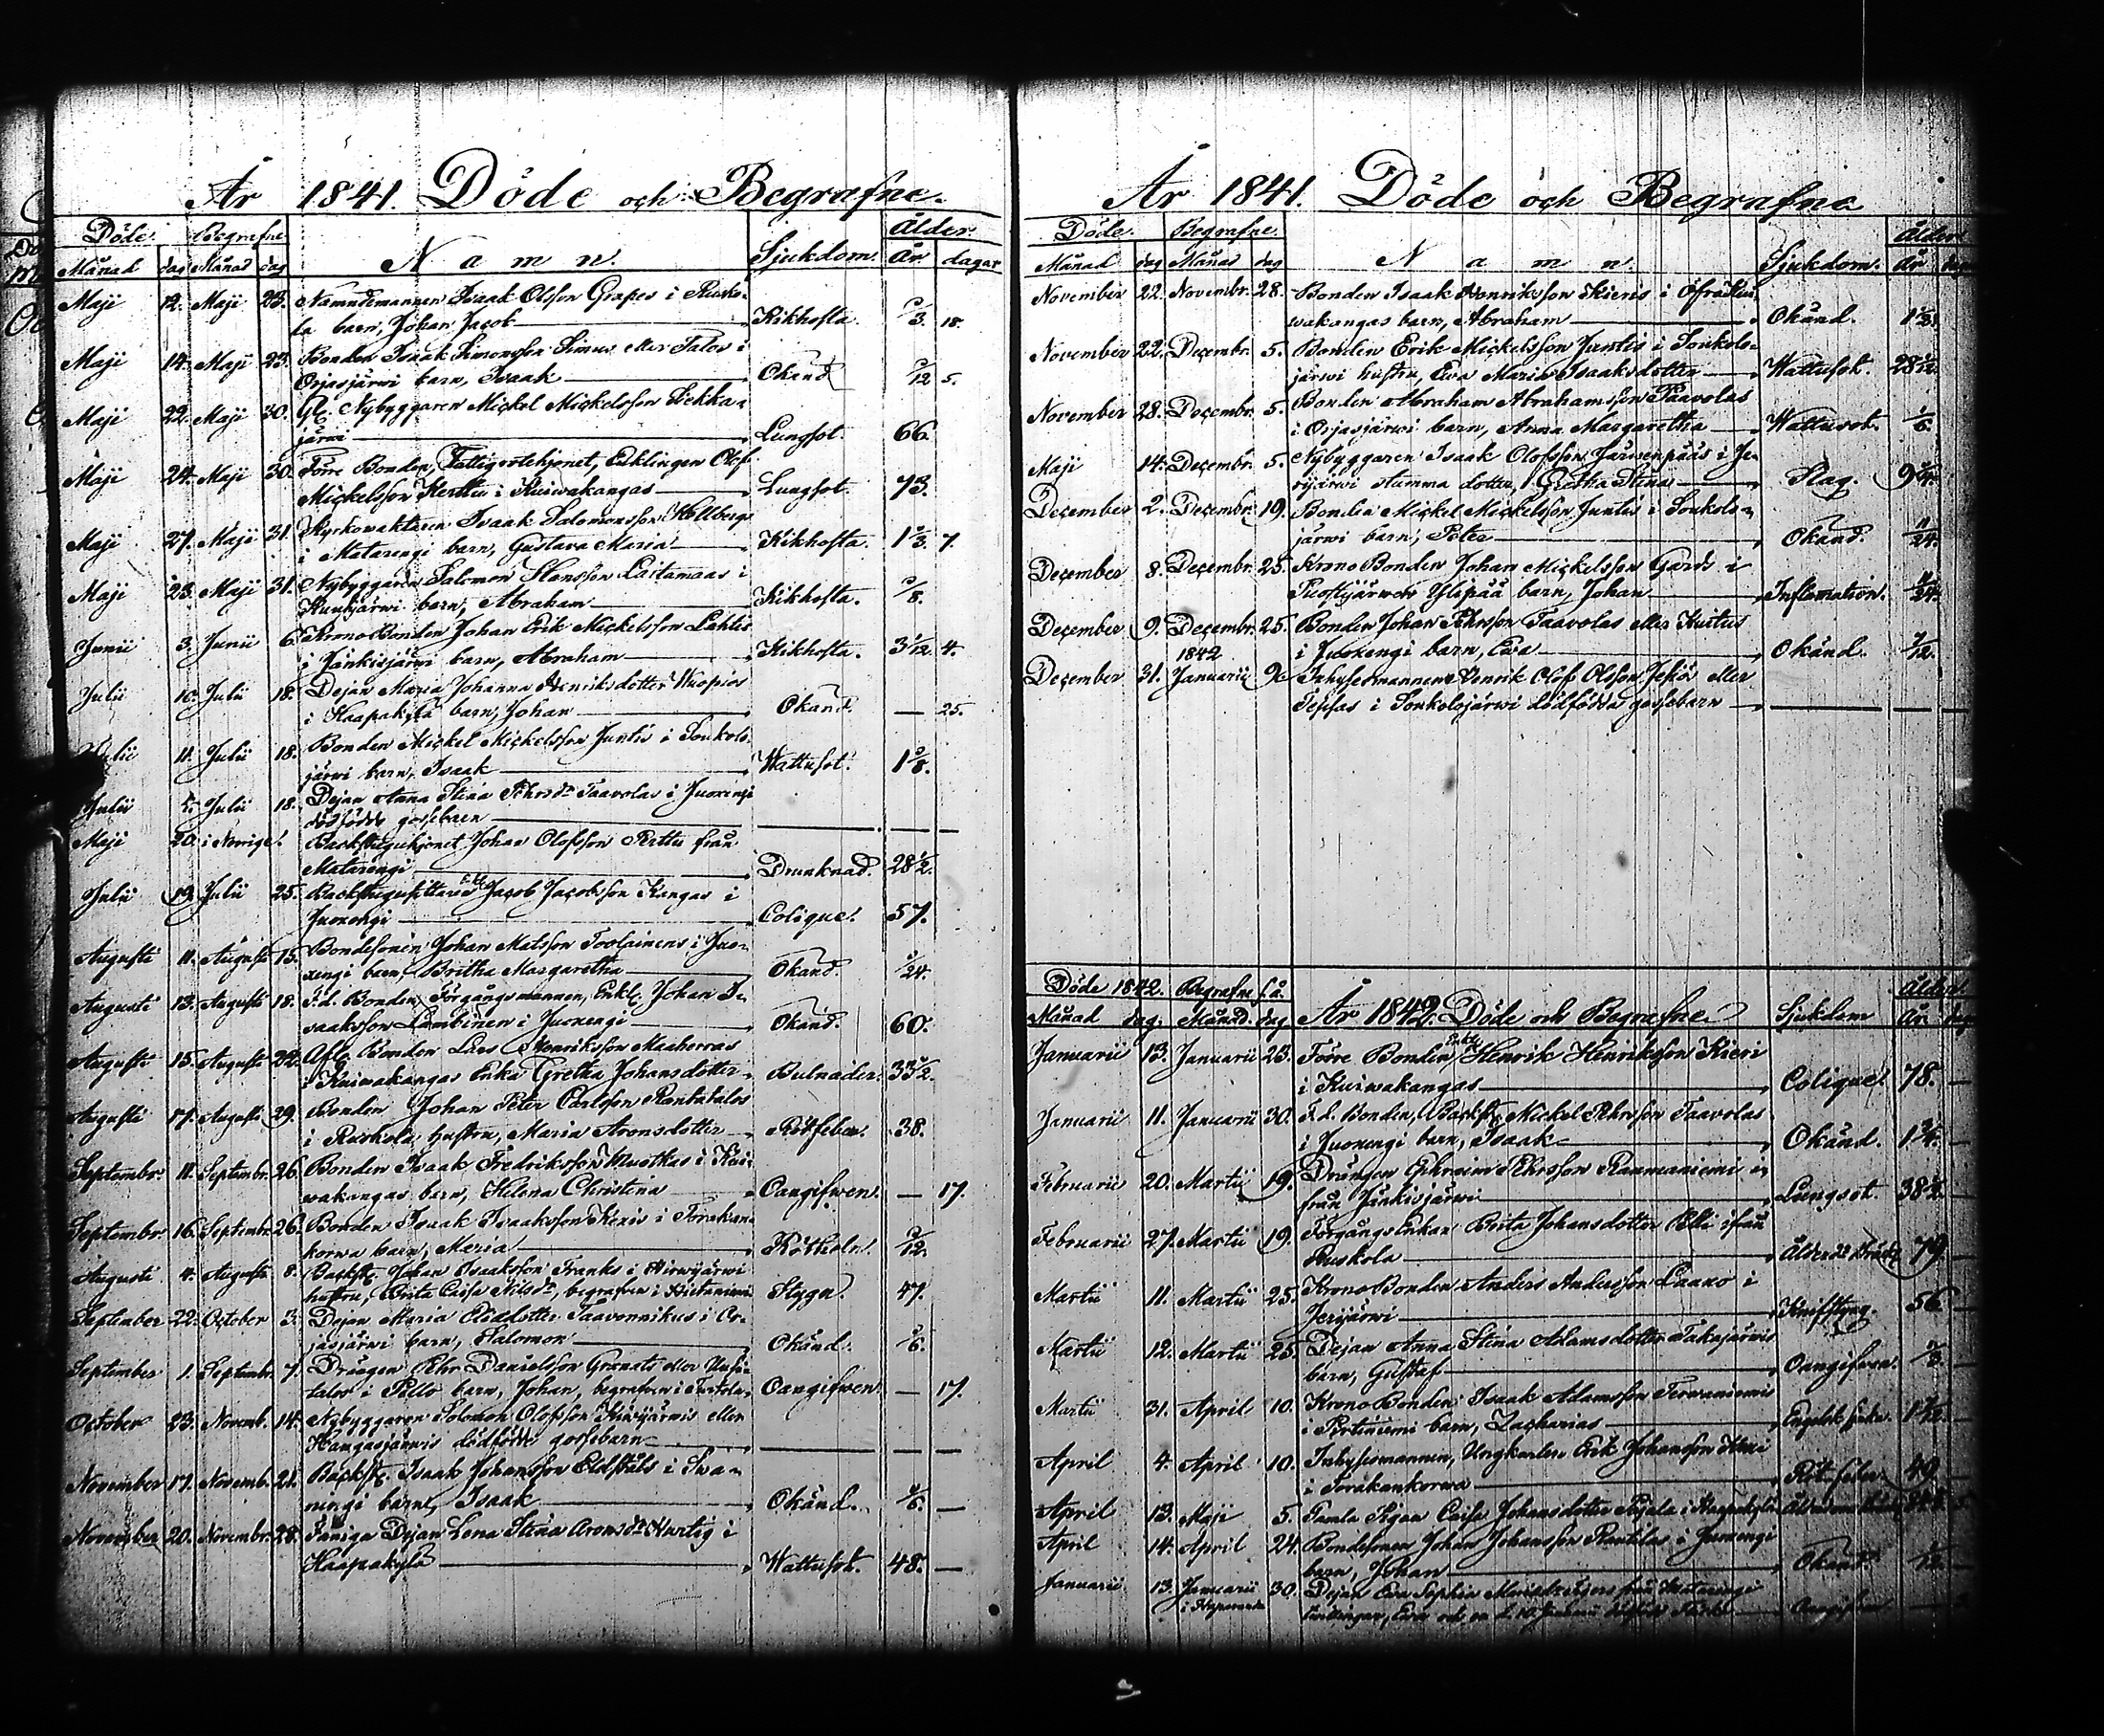 År 1841. Döde och Begrafne.
Döde. Begrafne Namn. Sjukdom. Ålder.
Månad dag Månad dag År dagar
Maji 12. Maji 23. Nämndemannen Isaak Olofson Grapes i Rusko-
la barn, Johan Jacob Kikhosta. 2/3. 18.
Maji 14. Maji 23. Bonden Isaak Simonsson Simus eller Talos i
Orjasjärwi barn, Isaak Okänd /12 5.
Maji 22. Maji 30. Gl. Nybyggaren Mickel Mickelsson Liekka-
järwi Lungsot. 66.
Maji 24. Maji 30. Förre Bonden, Fattighjonet, Enklingen Olof
Mickelsson Kerttu i Kuiwakangas Lungsot. 73.
Maji 27. Maji 31. Kyrkowaktaren Isaak Salomonsson Hollbergs
i Matarengi barn, Gustava Maria Kikhosta. 1 2/3. 7.
Maji 23. Maji 31. Nybyggaren Salomon Hansson Laitamaas i
barn, Abraham Kikhosta. /8.
Junii 3. Junii 6. Krono Bonden Johan Erik Mickelsson Lahtis
i Jänkisjärwi barn, Abraham Kikhosta. 3 1/12 4.
Julii 10. Julii 18. Dejan Maria Johanna Henriksdotter Kuopios
i Haapakylä barn, Johan Okänd. — 25.
Julii 11. Julii 18. Bonden Mickel Mickelsson Juntis i Soukolo-
järwi barn, Isaak Wattusot. 1 /8.
Julii 5. Julii 18. Dejan Anna Stina Pehrsdr Taavolas i Juoxengi
dödfödde gossebarn — — —
Maji 20. i Norrige. Backstuguhjonet Johan Olofsson Perttu från
Matarengi Drunknad. 28 1/2.
Julii 19. Julii 25. Backstugusittaren Enkl. Jacob Jacobsson Kangas i
Juoxengi Colique. 57.
Augusti 11. Augusti 15. Bondesonen Johan Matsson Toolainens i Juo-
xengi barn, Britha Margaretha Okänd. /24.
Augusti 13. Augusti 18. F.d. Bonden, Förgångsmannen, Enkl. Johan I-
saaksson Lambinen i Juoxengi Okänd. 60.
Augusti 15. Augusti 22. Afl. Bonden Lars Henriksson Maaherras
i Kuiwakangas Enka Gretha Johansdotter Bulnader. 33 1/2.
Augusti 17. Augusti 29. Bonden Johan Peter Carlsson Rantatalos
i Ruskola, hustru, Maria Aronsdotter Rötfeber. 38.
Septembr. 11. Septembr. 26. Bonden Isaak Fredriksson Muotkas i Kui-
wakangas barn, Helena Christina Oangifwen. — 17.
Septembr. 16. Septembr. 26. Bonden Isaak Isaaksson Kenis i Torakan-
korwa barn, Maria Rötholn. /12.
Augusti 4. Augusti 8. Backst. Johan Isaaksson Franks i Hirwijärwi
hustru, Brita Caisa Nilsdr, begrafwen i Hietaniemi Stygn. 47.
September 22. October 3. Dejan Maria Eliædotter Taavonnikus i Or-
jasjärwi barn, Salomon Okänd. /6.
September 1. Septembr. 7. Drängen Pehr Danielsson Granats eller
talos i Pello barn, Johan, begrafwen i Turtola. Oangifwen — 17.
October 23. Novemb. 14. Nybyggaren Solomon Olofsson Kiwijärwis eller
Kangasjärwis dödfödde gossebarn — — —
November 17. Novemb. 21. Backst. Isaak Johansson Eldståls i Swa-
ningi barn, Isaak Okänd. /6. —
November 20. Novembr. 28. Faniga Dejan Lena Stina Aronsdr Hurtig i
Haapakylä Wattusot. 48. —
År 1841. Döde och Begrafne
Döde. Begrafne. Namn. Sjukdom. Ålder
Månad dag Månad dag År
November 22. Novembr. 28. Bonden Isaak Henriksson Kieris i Öfra Kui-
wakangas barn, Abraham Okänd. 1 2/3.
November 22. Decembr. 5. Bonden Erik Mickelsson Juntis i Soukolo-
järwi hustru, Ewa Maria Isaaksdotter Wattusot. 28
November 28. Decembr. 5. Bonden Abraham Abrahamsson Taavolas
i Orjasjärwi barn, Anna Margaretha Wattusot. 1/6.
Maji 14. Decembr. 5. Nybyggaren Isaak Olofsson Järwenpääs i Je-
rijärwi stumma dotter, Gretha Stina Slag. 9
December 2. Decembr. 19. Bonden Mickel Mickelsson Juntis i Soukolo-
järwi barn, Peter Okänd. 11/24.
December 8. Decembr. 25. Krono Bonden Johan Mickelsson Gärds i
Puostijärwen Ylipää barn, Johan Inflamation. /24.
December 9. Decembr. 25. Bonden Johan Pehrsson Taavolas eller Hietus
i Juoxengi barn, Ewa Okänd. /12.
1842
December 31. Januarii 9. Inhysesmannens Henrik Olof Olsson Jesiö eller
Teppas i Soukolojärwi dödfödda gossebarn — — —
Döde 1842. Begrafne s.å. Ålder.
Månad dag. Månad. dag År 1842. Döde och Begrafne. Sjukdom År
Januarii 13. Januarii 23. Förre Bonden Enkl. Henrik Henriksson Kieri
i Kuiwakangas Colique. 78. —
Januarii 11. Januarii 30. F.d. Bonden, Backst. Mickel Pehrsson Taavolas
i Juoxengi barn, Isaak Okänd. 1 3/4. —
Februarii 20. Martii 19. Drängen Ephraim Pehrsson Raumaniemi i-
från Jänkisjärwi Lungsot. 38
Februarii 27. Martii 19. Förgångs Enkan Brita Johansdotter Pelli ifrån
Ruskola 79. —
Martii 11. Martii 25. Krono Bonden Anders Andersson Laano i
Jerijärwi Knifstyng. 56 —
Martii 12. Martii 25. Dejan Anna Stina Adamsdotter Takajärwis
barn, Gustaf Oangifwen. /3. —
Martii 31. April 10. Krono Bonden Isaak Adamsson Terwaniemis
i Pirtiniemi barn, Zacharias Engelsk sjuka. 1 /12. —
April 4. April 10. Inhysesmannen, Ungkarlen Erik Johansson Keksi
i Torakankorwa Rötfeber 49 —
April 13. Maji 5. Gamla Pigan Caisa Johansdotter Pajala i Haapakylä
April 14. April 24. Bondesonen Johan Johansson Rantilas i Juoxengi
barn, Johan Okänd /12. —
Januarii 13. Januarii 30. Dejan Ewa Sophia från Matarengi
i Haparanda